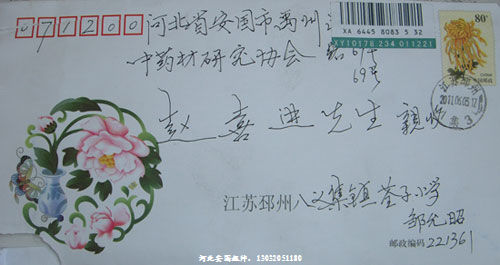 071200
河北省安国市禹州
中药材研究协会
69号
赵喜进先生 亲收
XA 6445 8083 5 32
XY10178 234 011221
80分
中国邮政
江苏邳州
2011.06.05.17
江苏邳州八义集镇荃子小学
邹允昭
邮政编码 221361
河北安国祖仲: 13032051180